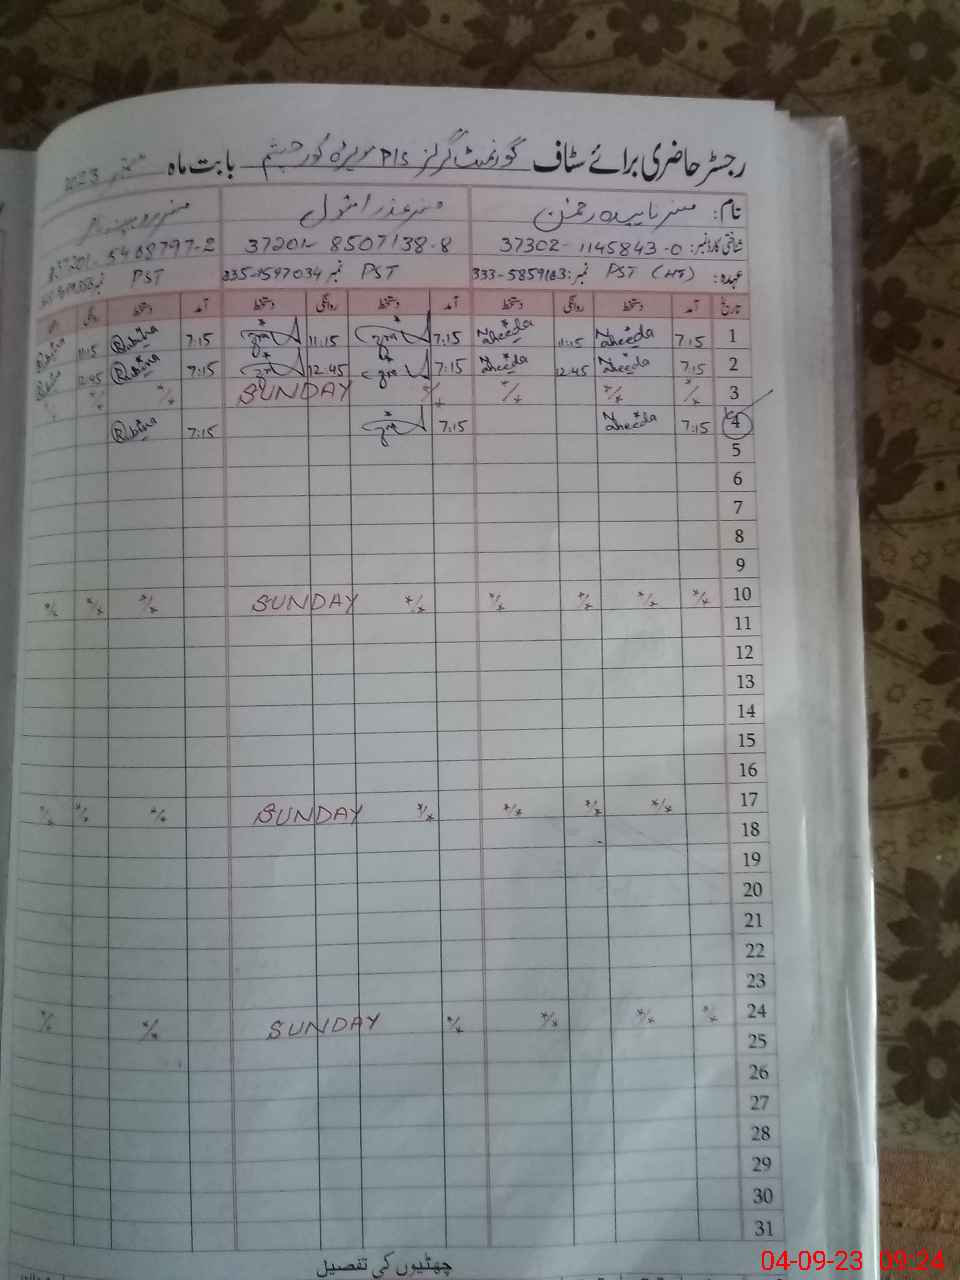 رجسٹر حاضری برائے سٹاف گورنمنٹ گرلز P/S بابت ماہ ستمبر 2023
نام: مسز ناہیدہ رحمٰن مسز عذرا بتول
شناختی کارڈ نمبر: 37302-1145843-0 37201-8507138-8 37201-5468797-2
عہدہ: PST (HT) نمبر: 333-5859183 PST نمبر 335-1597034 PST نمبر
تاریخ آمد دستخط روانگی دستخط آمد دستخط روانگی دستخط آمد دستخط
1 7:15 Naheeda 11:15 Naheeda 7:15 11:15 7:15 Rubina 11:15 Rubina
2 7:15 Naheeda 12:45 Naheeda 7:15 12:45 7:15 Rubina 12:45
3 SUNDAY
4 7:15 Naheeda 7:15 7:15 Rubina
5
6
7
8
9
10 SUNDAY
11
12
13
14
15
16
17 SUNDAY
18
19
20
21
22
23
24 SUNDAY
25
26
27
28
29
30
31
چھٹیوں کی تفصیل
04-09-23 09:24